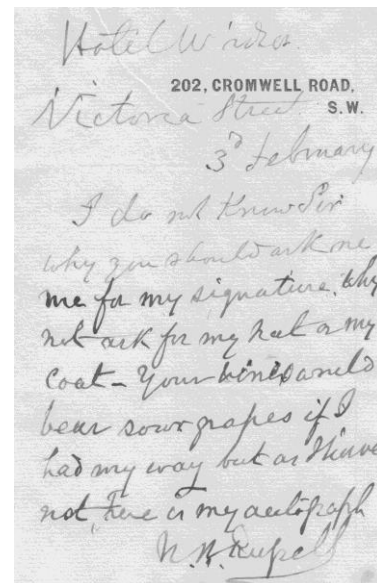 Hotel Windsor.
202, CROMWELL ROAD,
Victoria Street. S.W.
3d February
I do not know Sir
why you should ask me
me for my signature. Why
not ask for my hat or my
coat - Your vines would
bear sour grapes if I
had my way but as I have
not, here is my autograph
W. H. Russell